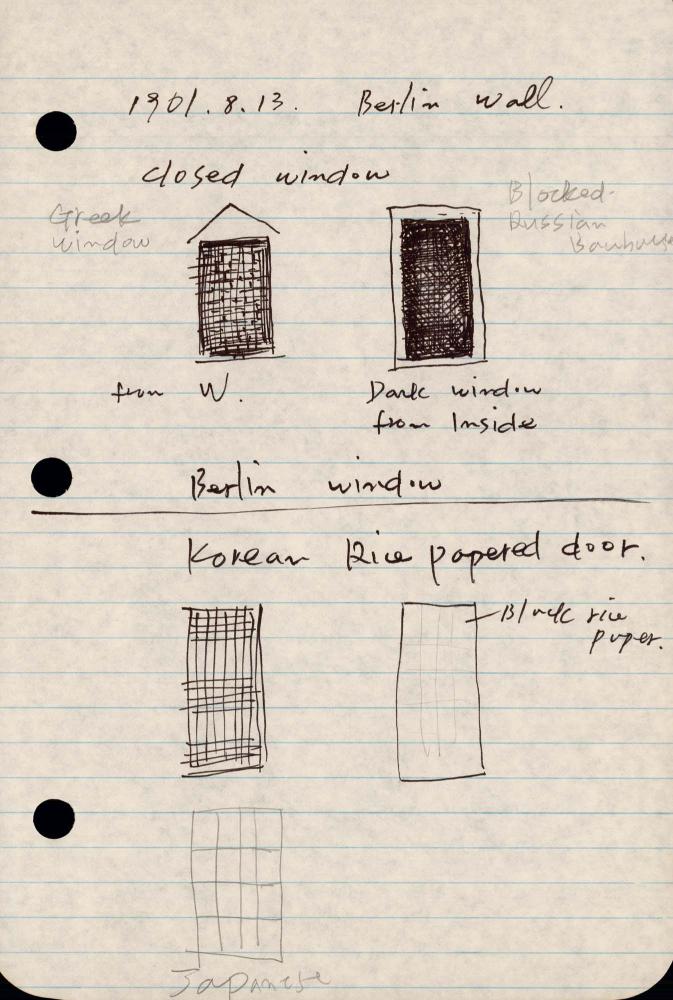 1961.8.13. Berlin wall.
closed window
Greek
window
Blocked.
Russian
Bauhause
from W.
Dark window
from Inside
Berlin window
Korean Rice papered door.
Black rice
paper.
Japanese